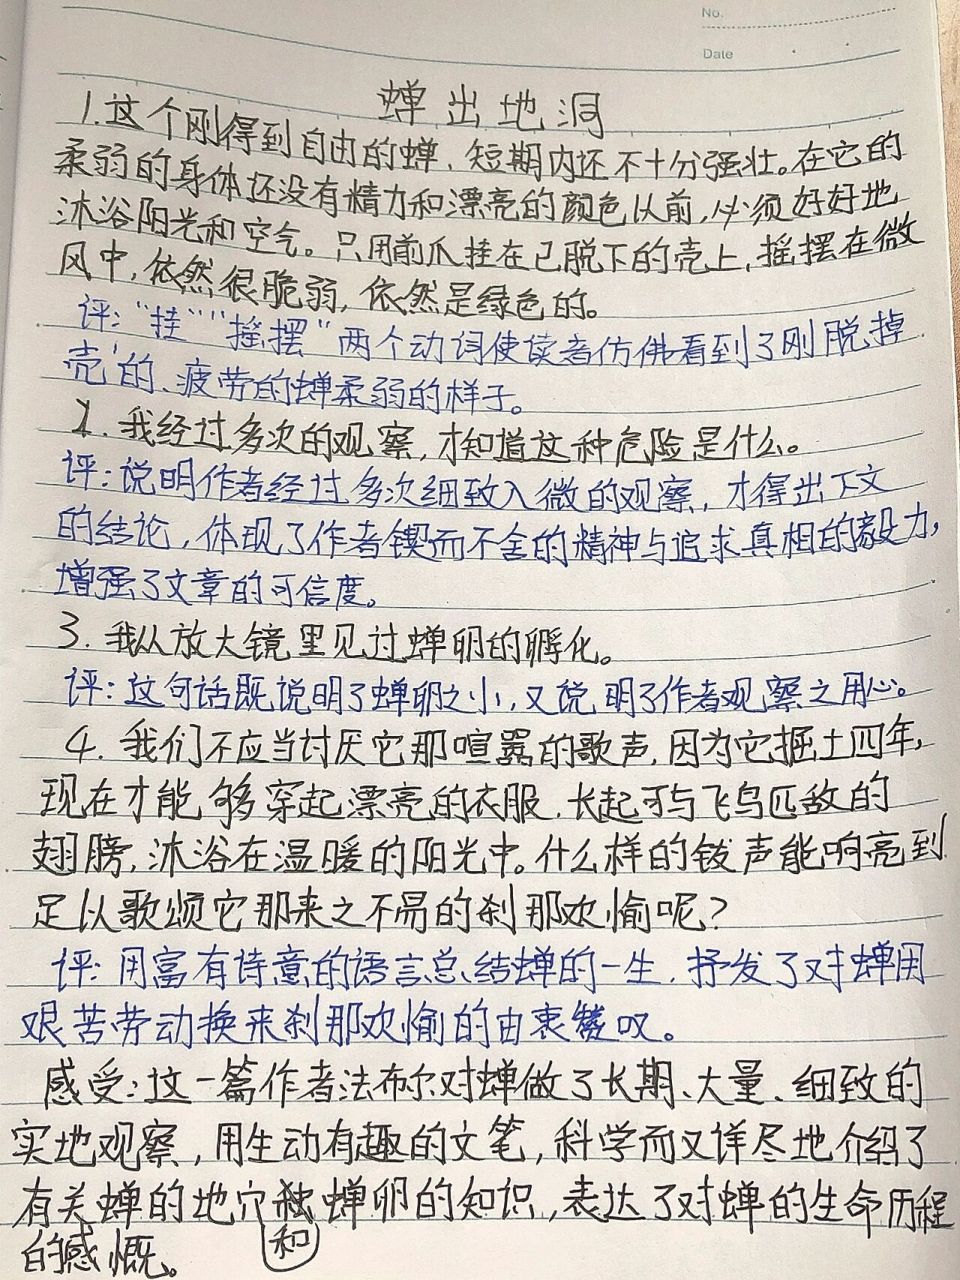 No.
Date
蝉出地洞
1.这个刚得到自由的蝉,短期内还不十分强壮。在它的
柔弱的身体还没有精力和漂亮的颜色以前,必须好好地
沐浴阳光和空气。只用前爪挂在已脱下的壳上,摇摆在微
风中,依然很脆弱,依然是绿色的。
评:“挂”“摇摆”两个动词使读者仿佛看到了刚脱掉
壳的、疲劳的蝉柔弱的样子。
2.我经过多次的观察,才知道这种危险是什么。
评:说明作者经过多次细致入微的观察,才得出下文
的结论,体现了作者锲而不舍的精神与追求真相的毅力,
增强了文章的可信度。
3.我从放大镜里见过蝉卵的孵化。
评:这句话既说明了蝉卵之小,又说明了作者观察之用心。
4.我们不应当讨厌它那喧嚣的歌声,因为它掘土四年,
现在才能够穿起漂亮的衣服,长起可与飞鸟匹敌的
翅膀,沐浴在温暖的阳光中。什么样的钹声能响亮到
足以歌颂它那来之不易的刹那欢愉呢?
评:用富有诗意的语言总结蝉的一生,抒发了对蝉用
艰苦劳动换来刹那欢愉的由衷赞叹。
感受:这一篇作者法布尔对蝉做了长期、大量、细致的
实地观察,用生动有趣的文笔,科学而又详尽地介绍了
有关蝉的地穴和蝉卵的知识,表达了对蝉的生命历程
的感慨。